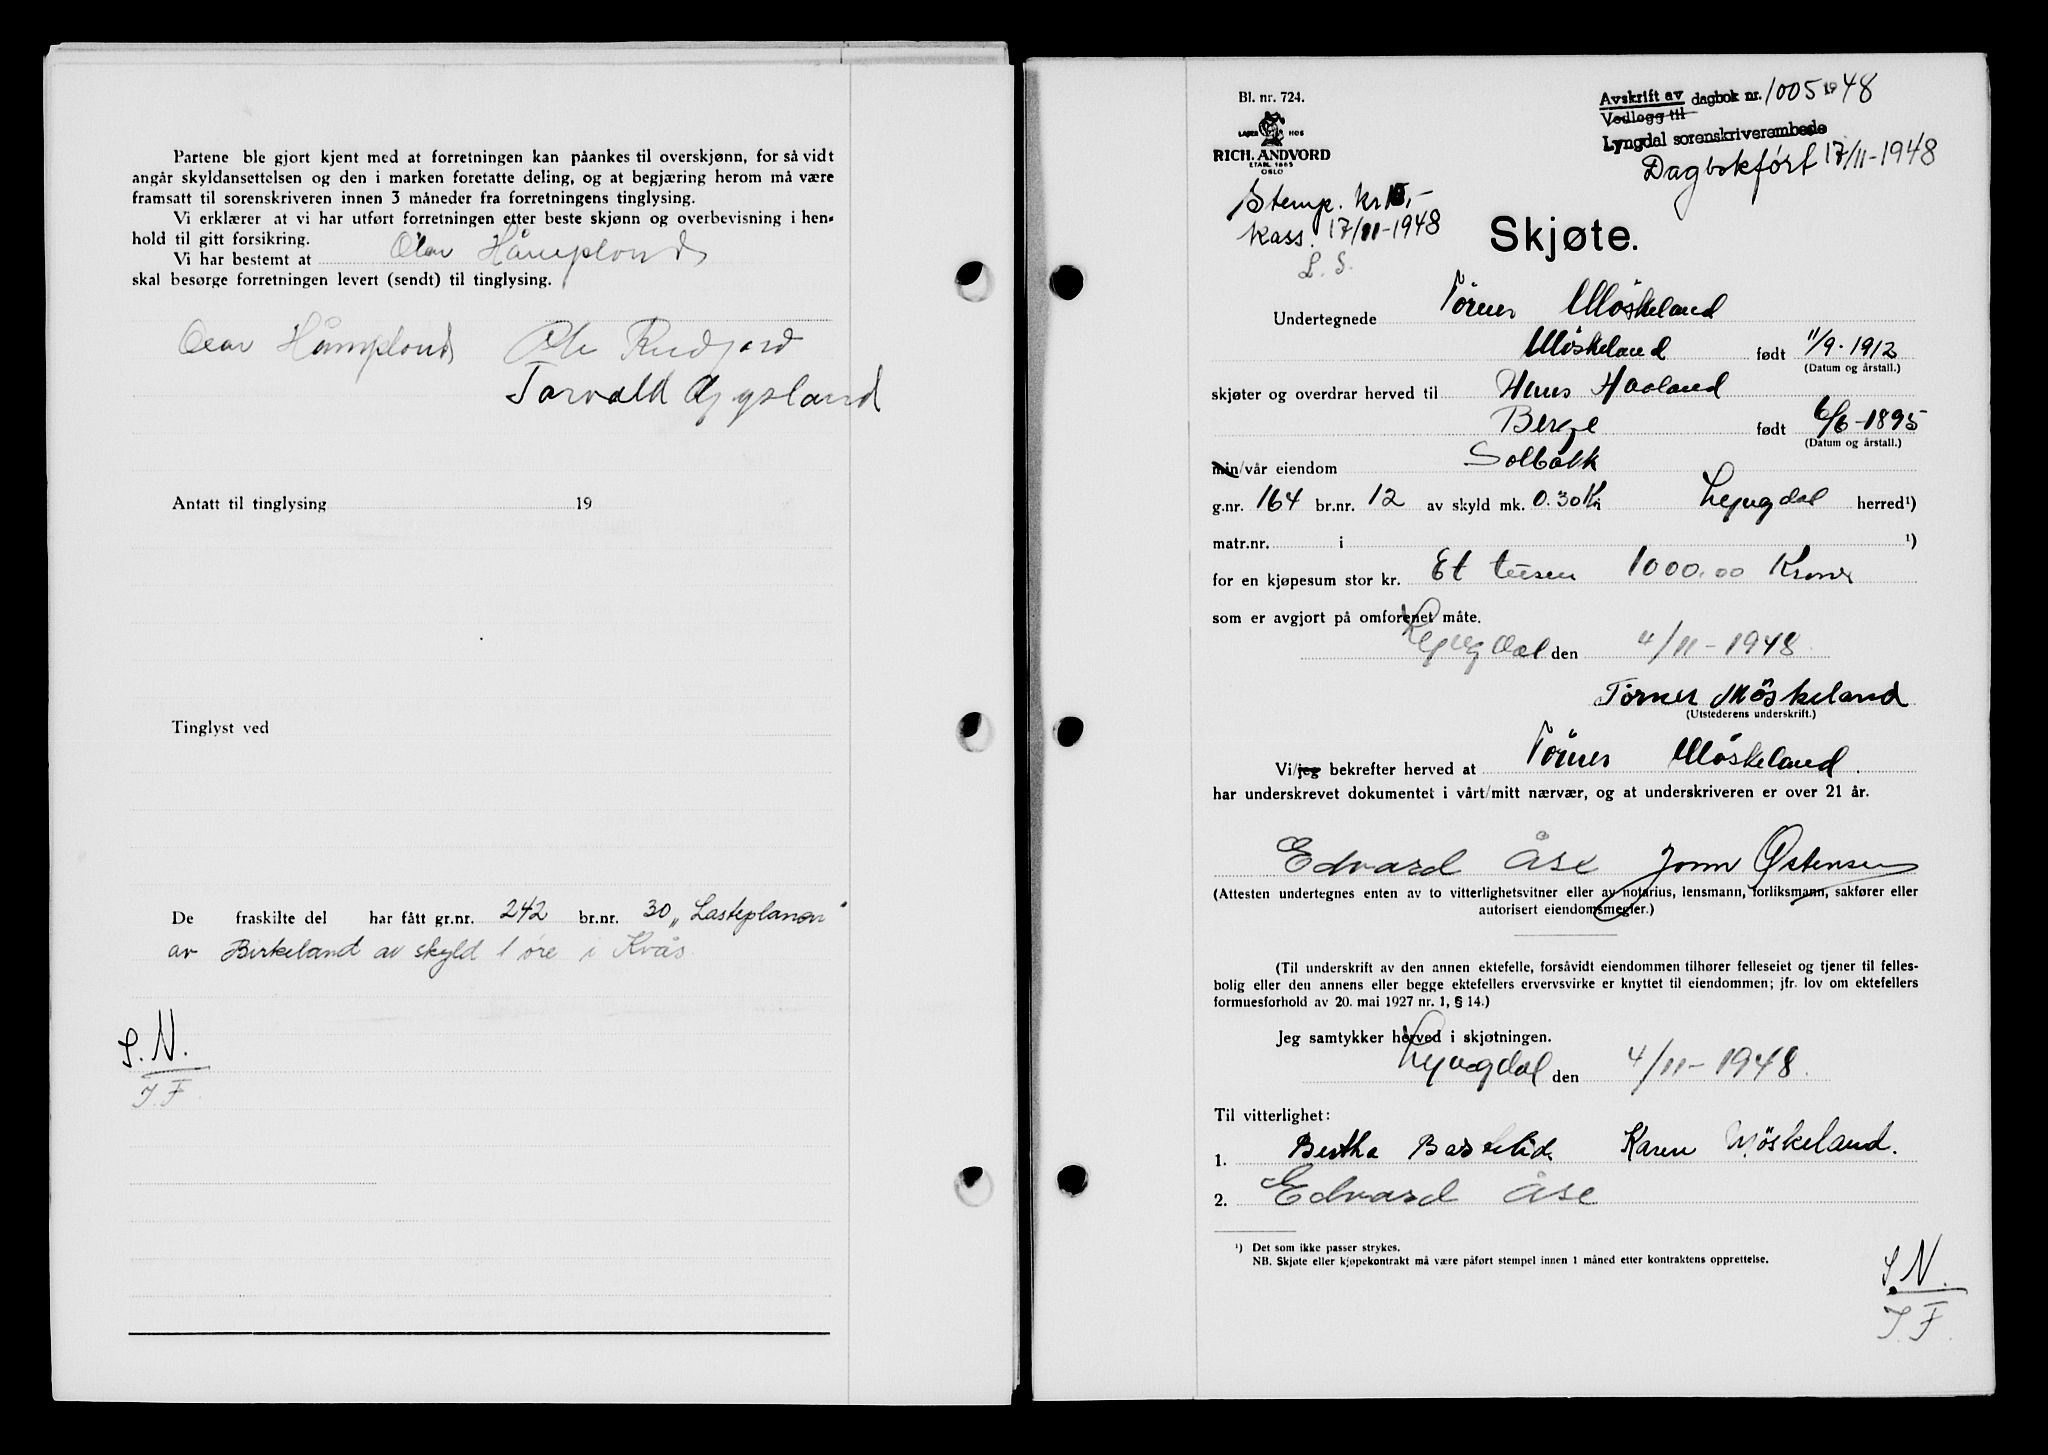 Partene ble gjort kjent med at forretningen kan påankes til overskjønn, for så vidt
angår skyldansettelsen og den i marken foretatte deling, og at begjæring herom må være
framsatt til sorenskriveren innen 3 måneder fra forretningens tinglysing.
Vi erklærer at vi har utført forretningen etter beste skjønn og overbevisning i hen-
hold til gitt forsikring.
Vi har bestemt at Olav Håmpland
skal besørge forretningen levert (sendt) til tinglysing.
Olav Håmpland Ole Rudjord
Tarvald Øygsland
Antatt til tinglysing 19
Tinglyst ved
De fraskilte del har fått gr.nr. 242 br.nr. 30 „Lasteplanen"
av Birkeland av skyld 1 øre i Kvås
S. N.
T. F.
Bl. nr. 724.
LAGER HOS
RICH. ANDVORD
ETABL 1865
OSLO
Avskrift av dagbok nr. 1005 1948
Vedlegg til
Lyngdal sorenskriverembede
Dagbokført 17/11-1948
Stemp. kr 15,-
kass. 17/11-1948
L. S.
Skjøte.
Undertegnede Tørner Møskeland
Møskeland født 11/9-1912
(Datum og årstall.)
skjøter og overdrar herved til Hans Haaland
Berge født 6/6-1895
(Datum og årstall.)
min/vår eiendom Solbakk
g.nr. 164 br.nr. 12 av skyld mk. 0.30 Kr Lyngdal herred¹)
matr.nr. i ¹)
for en kjøpesum stor kr. Et tusen 1000.00 Kroner
som er avgjort på omforenet måte.
Lyngdal den 4/11-1948.
Tørner Møskeland
(Utstederens underskrift.)
Vi/jeg bekrefter herved at Tørner Møskeland.
har underskrevet dokumentet i vårt/mitt nærvær, og at underskriveren er over 21 år.
Edvard Åse Jonn Østensen
(Attesten undertegnes enten av to vitterlighetsvitner eller av notarius, lensmann, forliksmann, sakfører eller
autorisert eiendomsmegler.)
(Til underskrift av den annen ektefelle, forsåvidt eiendommen tilhører felleseiet og tjener til felles-
bolig eller den annens eller begge ektefellers ervervsvirke er knyttet til eiendommen; jfr. lov om ektefellers
formuesforhold av 20. mai 1927 nr. 1, § 14.)
Jeg samtykker herved i skjøtningen.
Lyngdal den 4/11-1948.
Til vitterlighet:
1. Bertha Karen Møskeland.
2. Edvard Åse
¹) Det som ikke passer strykes.
NB. Skjøte eller kjøpekontrakt må være påført stempel innen 1 måned etter kontraktens opprettelse.
S. N.
T. F.